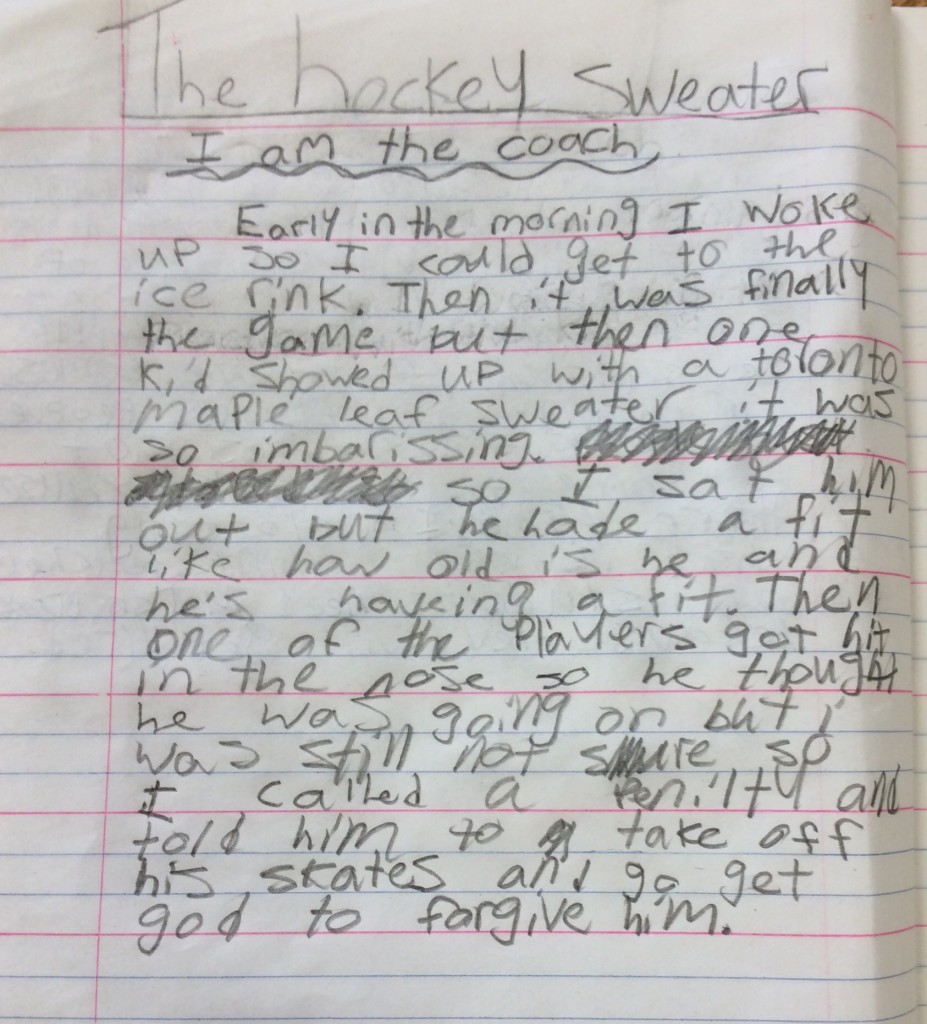 The hockey sweater
I am the coach
Early in the morning I woke
up so I could get to the
ice rink. Then it was finally
the game but then one
kid showed up with a toronto
maple leaf sweater it was
so imbarissing.
so I sat him
out but he hade a fit
like how old is he and
he's haveing a fit. Then
one of the players got hit
in the nose so he thought
he was going on but i
was still not sure so
I called a penilty and
told him to take off
his skates and go get
god to forgive him.